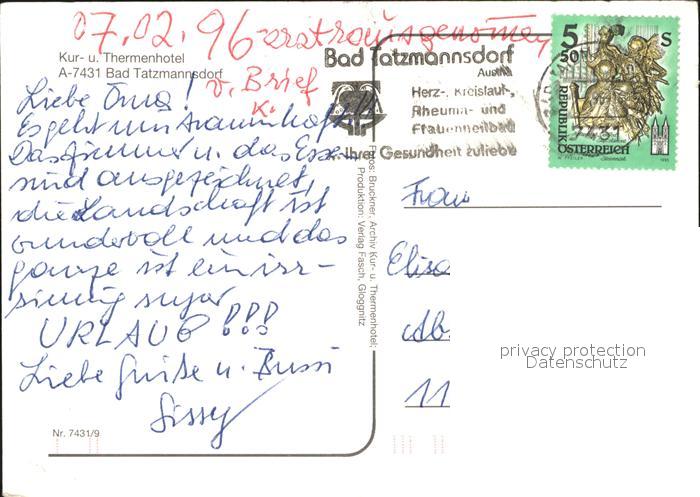 07.02.96 erst rausgenommen
v. Brief
K.
Kur- u. Thermenhotel
A-7431 Bad Tatzmannsdorf
Liebe Oma!
Es geht mir traumhaft!!
Das Zimmer u. das Essen
sind ausgezeichnet,
die Landschaft ist
wundervoll und das
ganze ist ein irr-
sinnig super
URLAUB!!!
Liebe Grüße u. Bussi
Sissy
Nr. 7431/9
Fotos: Bruckner, Archiv Kur- u. Thermenhotel;
Produktion: Verlag Fasch, Gloggnitz
Bad Tatzmannsdorf
Austria
Herz-, Kreislauf-,
Rheuma- und
Frauenheilbad
Ihrer Gesundheit zuliebe
7431
5 S
50
REPUBLIK
ÖSTERREICH
Frau
Elisa
11
privacy protection
Datenschutz